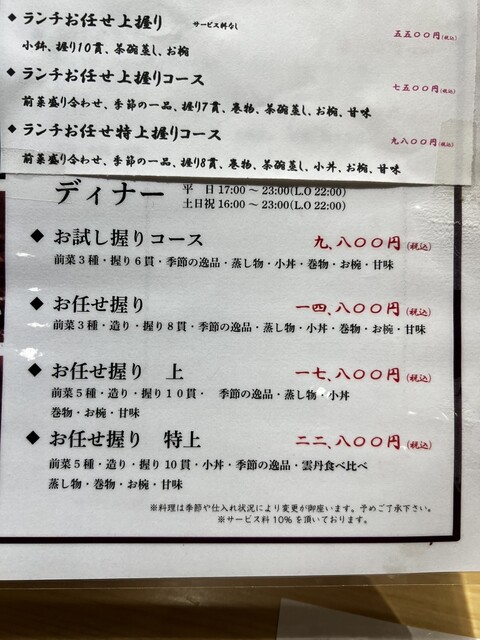 ◆ ランチお任せ上握り サービス料なし 五五〇〇円(税込)
小鉢、握り10貫、茶碗蒸し、お椀
◆ ランチお任せ上握りコース 七五〇〇円(税込)
前菜盛り合わせ、季節の一品、握り7貫、巻物、茶碗蒸し、お椀、甘味
◆ ランチお任せ特上握りコース 九八〇〇円(税込)
前菜盛り合わせ、季節の一品、握り8貫、巻物、茶碗蒸し、小丼、お椀、甘味
ディナー 平 日 17:00 ~ 23:00(L.O 22:00)
土日祝 16:00 ~ 23:00(L.O 22:00)
◆ お試し握りコース 九、八〇〇円(税込)
前菜3種・握り6貫・季節の逸品・蒸し物・小丼・巻物・お椀・甘味
◆ お任せ握り 一四、八〇〇円(税込)
前菜3種・造り・握り8貫・季節の逸品・蒸し物・小丼・巻物・お椀・甘味
◆ お任せ握り 上 一七、八〇〇円(税込)
前菜5種・造り・握り10貫・ 季節の逸品・蒸し物・小丼
巻物・お椀・甘味
◆ お任せ握り 特上 二二、八〇〇円(税込)
前菜5種・造り・握り10貫・小丼・季節の逸品・雲丹食べ比べ
蒸し物・巻物・お椀・甘味
※料理は季節や仕入れ状況により変更が御座います。予めご了承下さい。
※サービス料10%を頂いております。